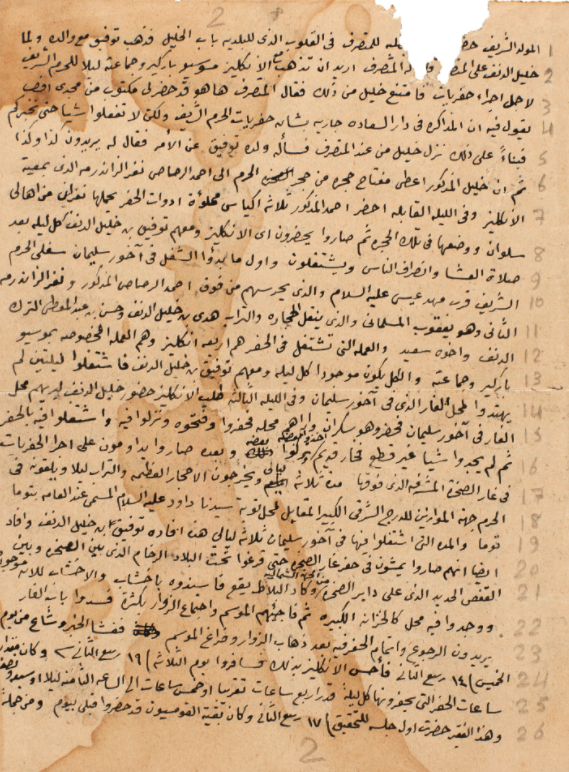 2
المولد الشريف للمتصرف فى القلوب الذى للبلديه باب الخليل فذهب توفيق مع والده ولما 1
خليل الدنف على المتصرف المتصرف اريد ان تذهب مع الانكليز مسيو باركير وجماعته ليلا للحرم الشريف 2
لاجل اجراء حفريات فامتنع خليل من ذلك فقال المتصرف ها هو قد حضر لى مكتوب من 3
يقول فيه ان المذاكره فى دار السعاده جاريه بشان حفريات الحرم الشريف ولكن لا تفعلوا شيا حتى نخبركم 4
فبناءً على ذلك نزل خليل من عند المتصرف فسأله ولده توفيق عن الامر فقال له يريدون كذا وكذا 5
ثم ان خليل المذكور اعطى مفتاح حجره من حجر الحرم الى احمد الرصاصى نفر الزاندرمه الذى بمعية 6
الانكليز وفى الليله القابله احضر احمد المذكور ثلاثة اكياس مملوءة ادوات الحفر يحملها نفران من اهالى 7
سلوان ووضعها فى تلك الحجره ثم صاروا يحضرون اى الانكليز ومعهم توفيق بن خليل الدنف كل ليله بعد 8
صلاة العشا وانصراف الناس ويشتغلون واول ما بدؤا الشغل فى آخور سليمان سفلى الحرم 9
الشريف قرب مهد عيسى عليه السلام والذى يحرسهم من فوق احمد الرصاصى المذكور ونفر الزاندرمه 10
الثانى وهو يعقوب المسلمانى والذى ينقل الحجاره والتراب هدى بن خليل الدنف وحسن بن عبد المعطى الترك 11
الدنف واخوه سعيد والعمله التى تشتغل فى الحفر هم اربعه انكليز وهم العمله المخصوصه بموسيو 12
باركير وجماعته والكل يكون موجودا كل ليله ومعهم توفيق بن خليل الدنف فاشتغلوا ليلتين لم 13
يهتدوا لمحل الغار الذى فى آخور سليمان وفى الليله الثالثه طلب الانكليز حضور خليل الدنف ليريهم محل 14
الغار فى آخور سليمان فحضر وهو سكران واراهم محله فحفروا وفتحوه ونزلوا فيه واشتغلوا فيه بالحفر 15
ثم لم يجدوا شيا غير قطع فخار قديم وبعده صاروا يداومون على اجرا الحفريات 16
فى غار الصخرة المشرفه الذى فوقها مدة ثلاثة ليالى ويخرجون الاحجار العظيمه والتراب ليلا ويلقوه فى 17
الحرم جهة الموازين للدرج الشرقى الكبير المقابل لمحل توبة سيدنا داود عليه السلام المسمى عند العامه بتوما 18
توما والمده التى اشتغلوا فيها فى آخور سليمان ثلاثة ليالى هذا افاده توفيق بن خليل الدنف وافاد 19
ايضا انهم صاروا يمشون فى حفر غار الصخره حتى فرغوا تحت البلاط الرخام الذى بين الصخره وبين 20
القفص الحديد الذى على داير الصخره وكاد البلاط يقع فاسندوه باخشاب والاخشاب للان موجوده 21
ووجدوا فيه محل كالخزانه الكبيره ثم فاجئهم الموسم واجتماع الزوار بكثرة فسدوا باب الغار 22
يريدون الرجوع واتمام الحفر فيه بعد ذهاب الزوار وفراغ الموسم ففشا الخبر وشاع من يوم 23
الخميس ١٤ ربيع الثانى فأحس الانكليز بذلك فسافروا يوم الثلاثة ١٩ ربيع الثانى وكان مقدار 24
ساعات الحفر التى يحفرونها كل ليلة قدر اربع ساعات تقريبا او خمس ساعات الى الساعه الثامنه ليلا او سبعه ونصف 25
وهذا الفقير حضرت اول جلسه للتحقيق ١٧ ربيع الثانى وكان بقية القومسيون قد حضروا قبلى بيوم ومن جملة 26
2